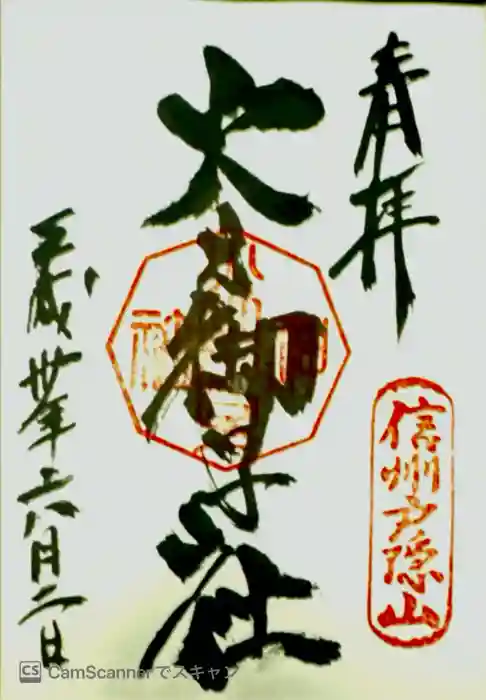 奉拝
信州戸隠山
火之御子社
平成卅年六月二日
CS CamScannerでスキャン